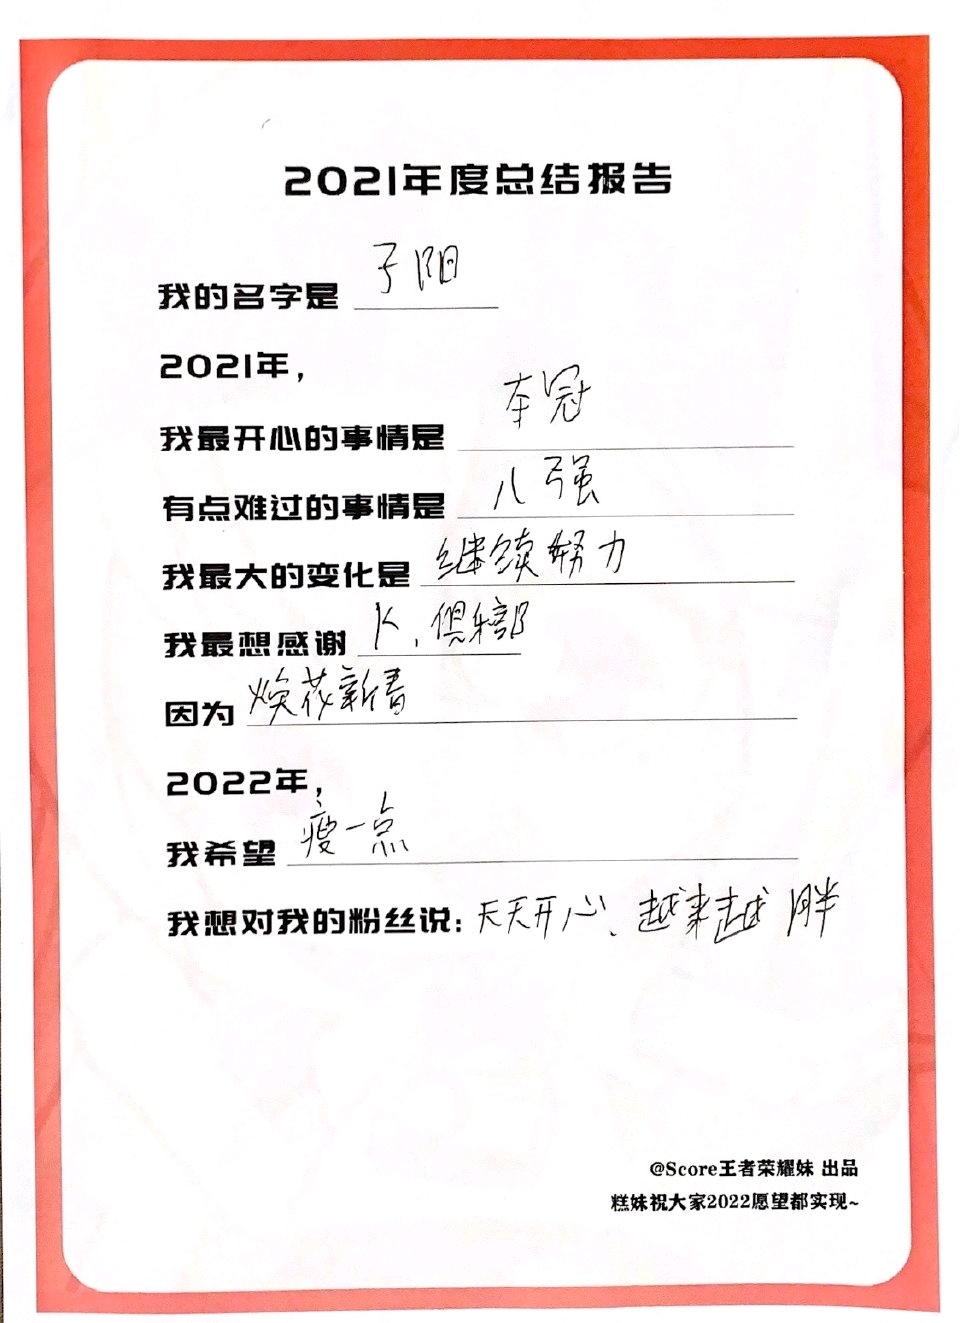 2021年度总结报告
我的名字是 子阳
2021年，
我最开心的事情是 夺冠
有点难过的事情是 八强
我最大的变化是 继续努力
我最想感谢 K、俱乐部
因为 焕花新春
2022年，
我希望 瘦一点
我想对我的粉丝说：天天开心、越来越胖
@Score王者荣耀妹 出品
糕妹祝大家2022愿望都实现~